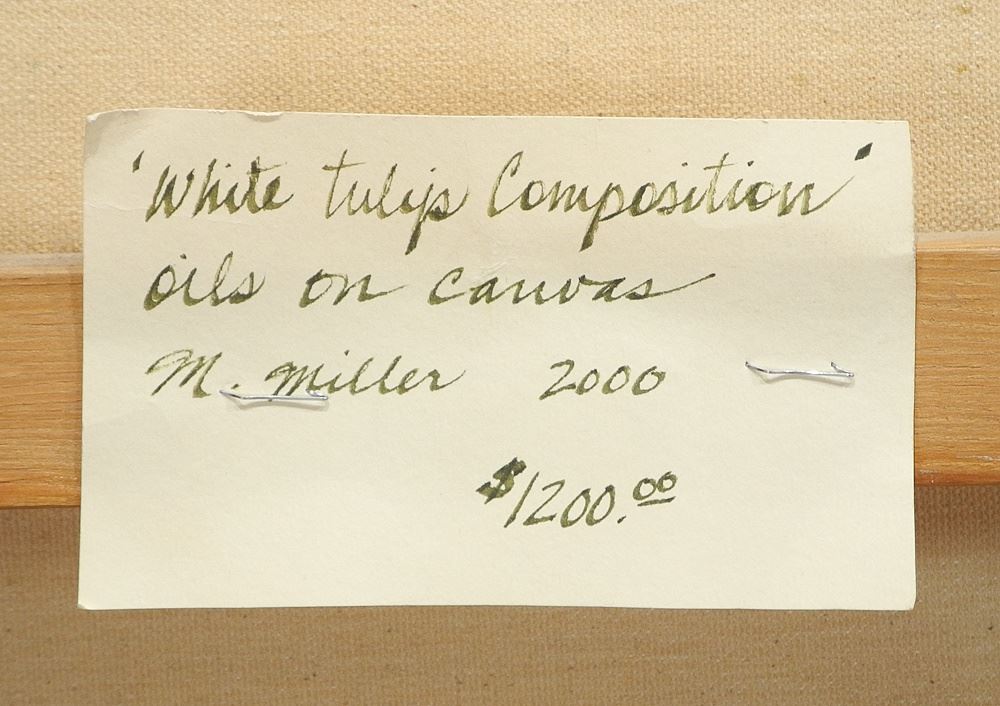 'White tulip Composition'
oils on canvas
M. Miller 2000
$1200.00